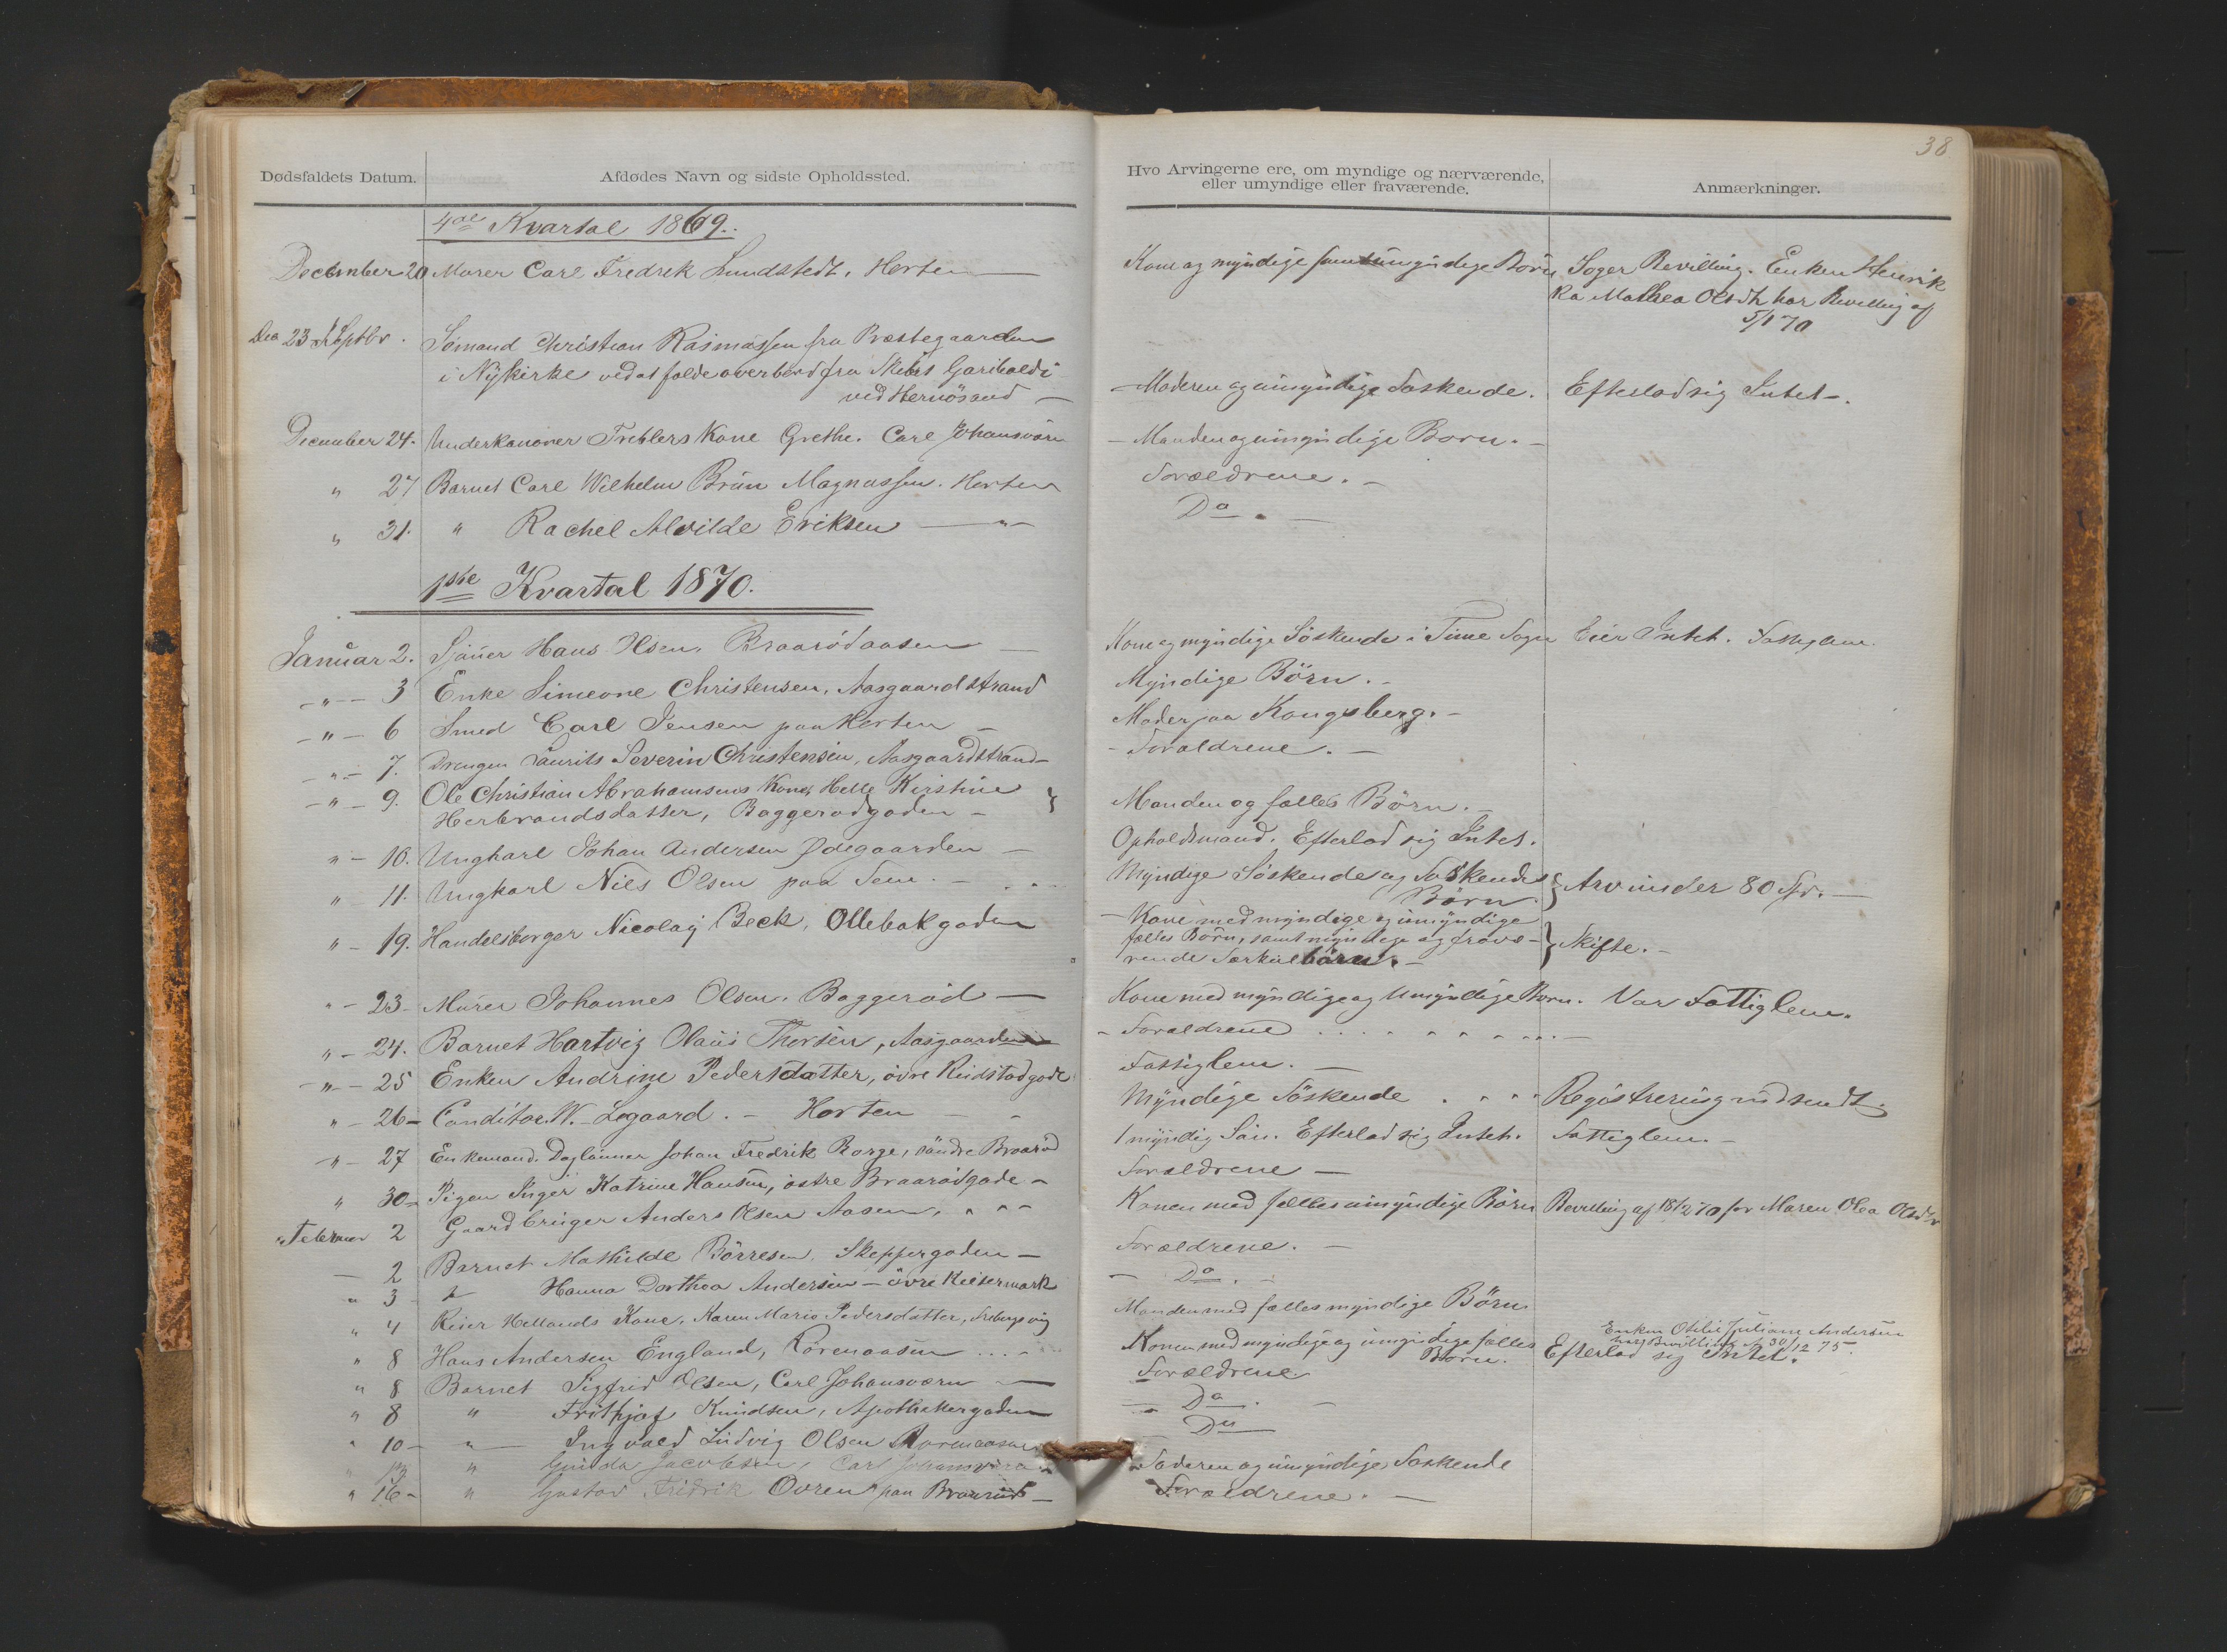 38
Dødsfaldets Datum. Afdødes Navn og sidste Opholdssted. Hvo Arvingerne ere, om myndige og nærværende, eller umyndige eller fraværende. Anmærkninger.
4de Kvartal 1869.
December 20 Murer Carl Fredrek Lundstedt. Horten — Kone og myndige samt umyndige Börn Söger Bevilling. Enken Henrik
ka Mathea Olsdtr har Bevilling af
5/1 70
Den 23 Septbr. Sömand Christian Rasmussen fra Præstegaarden
i Nykirke ved at falde overbord fra Skibet Garibaldi
ved Hernösand — Moderen og umyndige Søskende. Efterlod sig Intet.
December 24. Underkanoner Treblers Kone Grethe. Carl Johansværn — Manden og umyndige Born. —
" 27 Barnet Carl Wilhelm Brun Magnussen. Horten Forældrene. —
" 31. " Rachel Alvilde Eriksen — " — Do. —
1ste Kvartal 1870.
Januar 2. Sjöuer Hans Olsen. Braarödaasen — Kone og myndige Söskende i Time Sogn Eier Intet. Fattiglem.
— " — 3 Enke Simeone Christensen, Aasgaardstrand Myndige Börn. —
— " — 6 Smed Carl Jensen paa Horten — Moder paa Kongsberg. —
— " — 7. Drengen Laurits Severin Christensen, Aasgaardstrand — Forældrene. —
— " — 9. Ole Christian Abrahamsens Kone, Helle Kirstine
Herbrandsdatter, Baggerodgaden — Manden og fælles Börn. —
" — 10. Ungkarl Johan Andersen Ødegaarden — Opholdsmand. Efterlod sig Intet.
" — 11. Ungkarl Niels Olsen paa Sem. — Myndige Söskende og Søskendes
Börn. Arv under 80 Spd. —
" — 19. Handelsborger Nicolaj Beck, Ollebakgaden — Kone med myndige og umyndige
fælles Börn, samt myndige og fravæ-
rende Særkulbörn. — Skifte. —
" — 23 — Murer Johannes Olsen. Baggeröd — Kone med myndige og umyndige Born. Var Fattiglem.
" — 24. Barnet Hartvig Olaus Thorsen, Aasgaarden — Foraldrene
— " — 25 Enken Andrine Pedersdatter, övre Keidstadgade Fattiglem. —
" — 26 — Conditor W. Logaard. — Horten — Myndige Söskende Registrering indsendt.
— " — 27 Enkemand. Daglönner Johan Fredrik Borge, söndre Braaröd 1 myndig Sön. Efterlod sig Intet. Fattiglem. —
" 30 — Pigen Inger Katrine Hansen, östre Braarödgade — Forældrene —
" Februar 2 Gaardbruger Anders Olsen Aasen. Konen med fælles umyndige Börn Bevilling af 18/2 70 for Maren Olea Olsdtr
— 2 Barnet Mathilde Börresen. Skeppergaden — Forældrene. —
" 3 — " Hanna Dorthea Andersen — övre Keisermark — Do. —
" 4 Reier Hellands Kone, Karen Marie Pedersdatter, Frebergsvig Manden med fælles myndige Börn
" 8 Hans Andersen England, Rörenaasen Konen med myndige og umyndige fælles
Börn. Efterlod sig Intet.
Enken Otilie Juliane Andersen
har Bevilling af 30/12 75.
" 8 Barnet Sigfrid Olsen, Carl Johansværn — Forældrene
" 8 " Frithjof Knudsen, Apothekergaden — Do. —
" 10 — " — Ingvald Ludvig Olsen Rörenaasen Do
" " Gunda Jacobsen, Carl Johansværn — Faderen og umyndige Søskende
" 16 — " Gustav Fredrik Ovren paa Braaröd — Forældrene. —